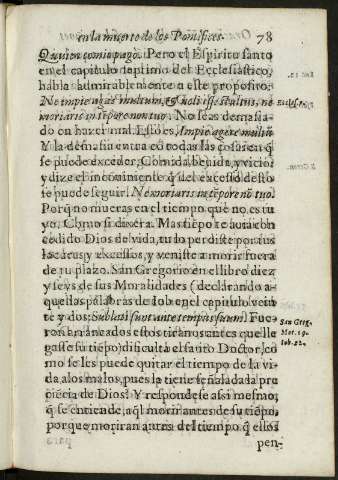 en la muerte de los Pontifices. 78
Quien comio pagò. Pero el Espiritu santo
en el capitulo septimo del Ecclesiástico,
habla admirablemente a este proposito.
Ne impie agas multum, & noli esse stultus, ne
moriaris in tẽpore non tuo. No seas demasia-
do en hazer mal. Esto es, Impie agere multũ
Y la demasia entra en todas las cosas en q̃
se puede exceder, Comida, bebida, y vicio:
y dize el inconviniente q̃ del excesso desto
te puede seguir. Ne moriaris in tẽpore nõ tuo.
Porq̃ no mueras en el tiempo que no es tu
yo. Como si dixera. Mas tiẽpo te auia con
cedido Dios de vida, tu lo perdiste por tus
locuras y excessos, y veniste a morir fuera
de tu plazo. San Gregorio en el libro diez
y seys de sus Moralidades (declarando a-
quellas palabras de Iob en el capitulo vein
te y dos: Sublati sunt ante tempus suum. Fue-
ron arrancados estos tiranos antes que lle
gasse su tiẽpo) dificulta el santo Doctor, co
mo se les puede quitar el tiempo de la vi-
da a los malos, pues la tiene señalada la pro
uidẽcia de Dios? Y respondese assi mesmo,
q̃ se entiende, aq̃l morir antes de su tiẽpo,
porque moriran antes del tiempo q̃ ellos
pen-
Eccles. 7.
San Greg.
Mor. 16.
Iob. 22.